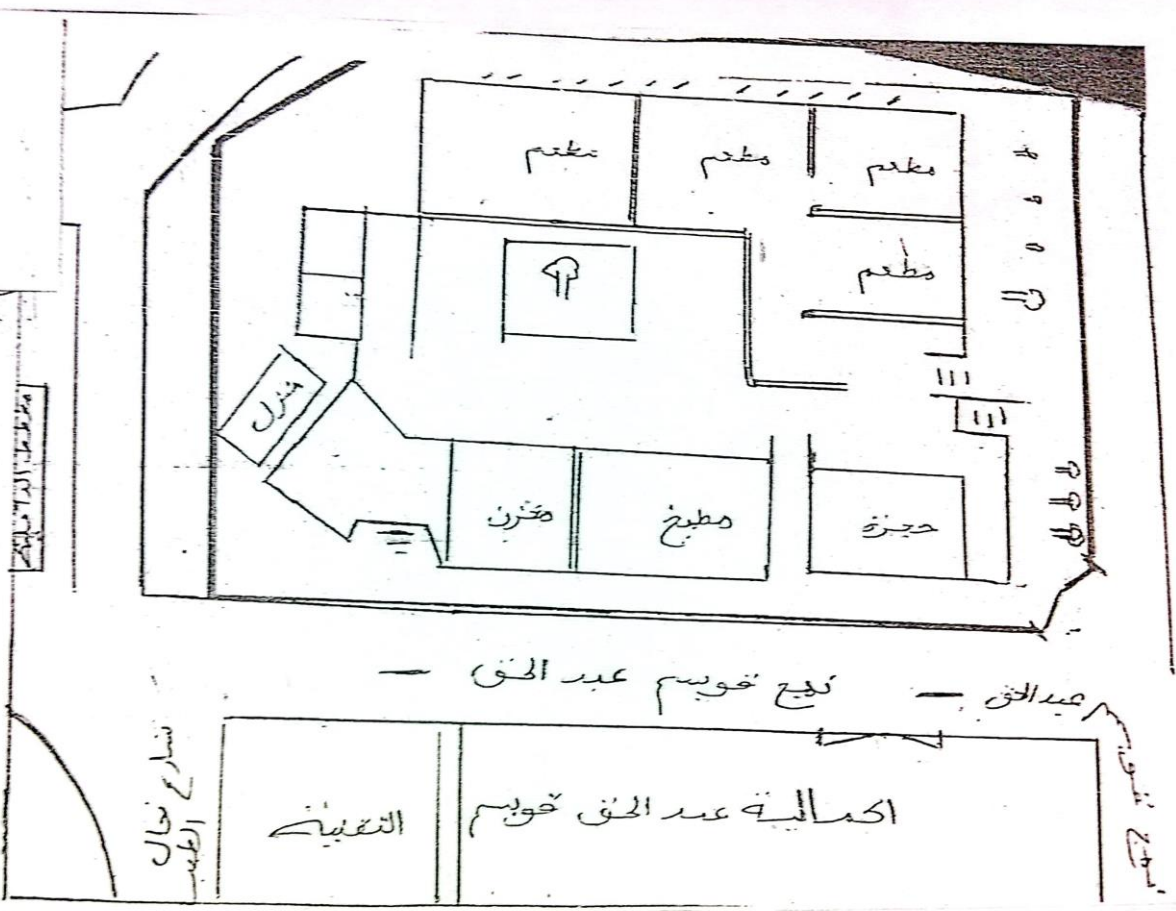 مطعم
مطعم
مطعم
مطعم
منزل
مخزن
مطبخ
حجزة
نهج قويسم عبد الحق
عبد الحق
شارع نحال الطيب
التقنية
اكمالية عبد الحق قويسم